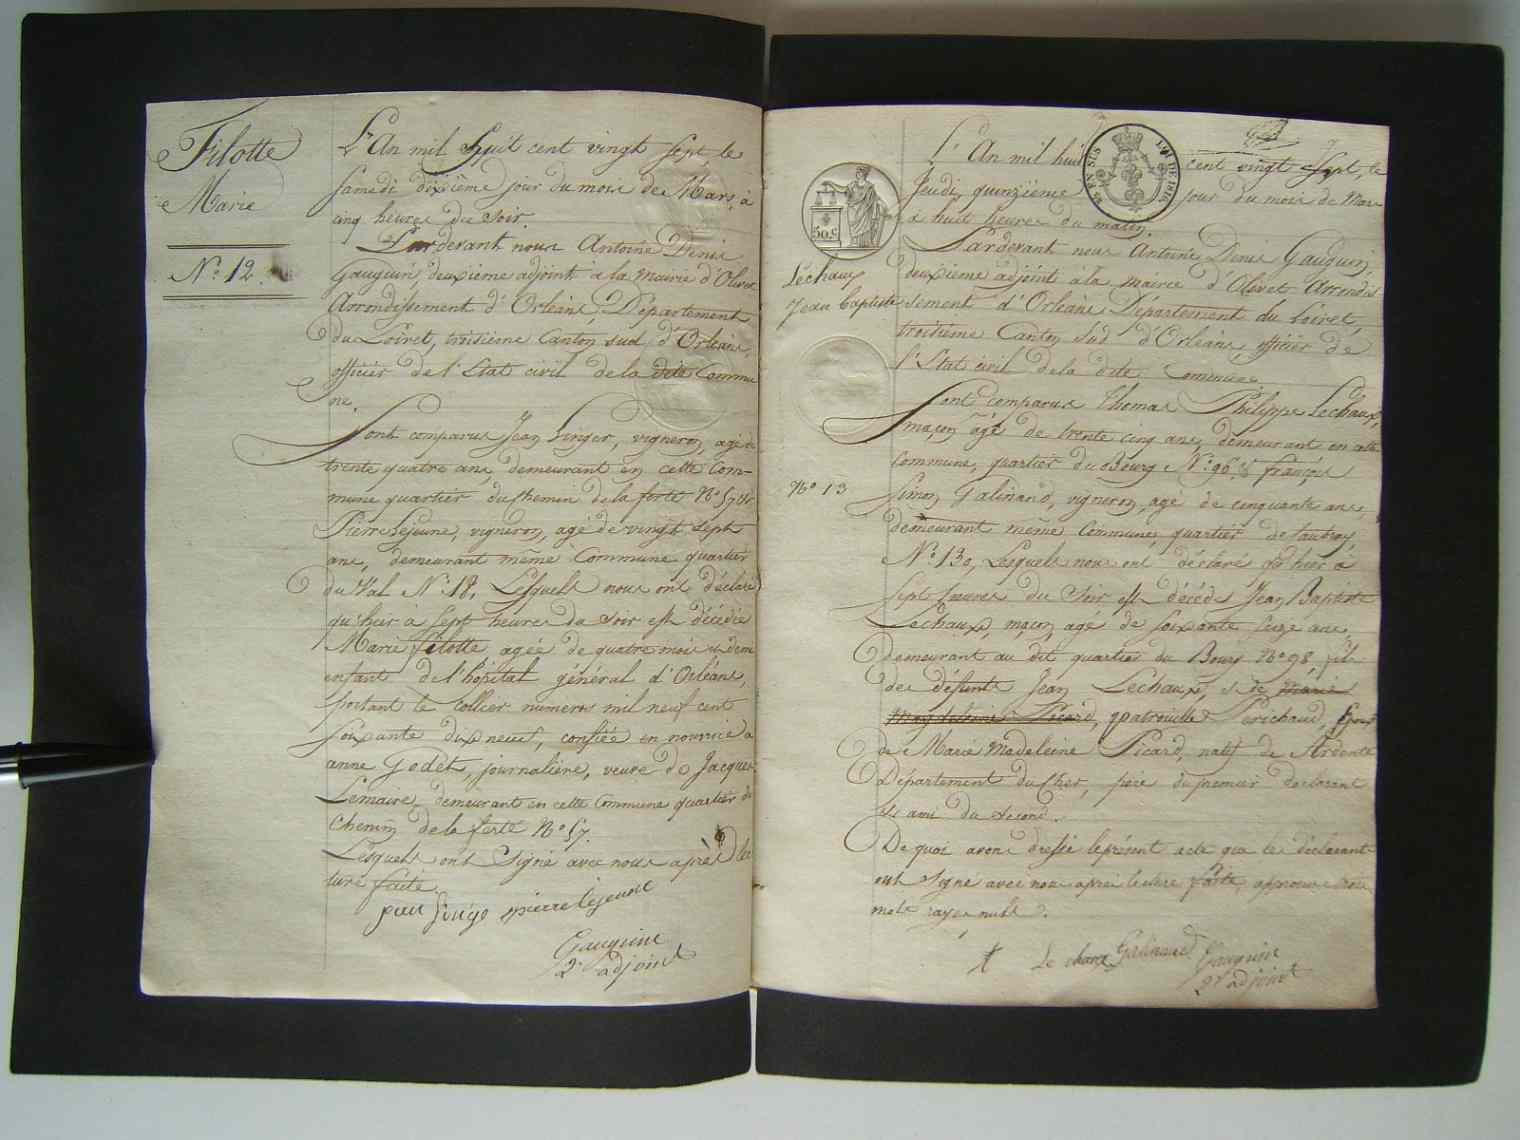 Filotte
Marie
N.o 12.
L'An mil huit cent vingt sept le
Samedi dixième jour du mois de Mars, à
cinq heures du soir.
Pardevant nous Antoine Denis
Gauguin, deuxième adjoint à la mairie d'Olivet
Arrondissement d'Orléans, Département
du Loiret, troisième Canton sud, d'Orléans,
officier de l'Etat civil de la dite Commu
ne.
Sont comparus Jean Singer, vigneron, agé de
trente quatre ans, demeurant en cette Com-
mune quartier du chemin de la ferté No 57 et
Pierre Lejeune, vigneron, agé de vingt sept
ans, demeurant même Commune quartier
du Val No 18. Lesquels nous ont déclaré
qu'hier à sept heures du soir est décédée
Marie filotte agée de quatre mois et demi
enfant de l'hôpital général d'Orléans,
portant le collier numeros mil neuf cent
soixante dix neuf, confiée en nourrice à
anne Godet, journalière, veuve de Jacques
Lemaire, demeurant en cette Commune quartier du
chemin de la ferté No 57.
Lesquels ont signé avec nous après lec
ture faite.
pierre lejeune
Gauguin
2e adjoint
L'An mil huit cent vingt Sept, le
Jeudi quinzième jour du mois de Mars
à huit heures du matin.
Pardevant nous Antoine Denis Gauguin,
deuxième adjoint à la mairie d'Olivet Arrondis
sement d'Orléans Département du Loiret,
troisième Canton Sud d'Orléans, officier de
l'Etat civil de la dite Commune.
50 c
Léchaux
Jean Baptiste
No 13
Sont comparus Thomas Philippe Lechaux,
maçon âgé de trente cinq ans, demeurant en cette
Commune, quartier du Bourg No 96 & françois
Simon Galinand, vigneron, agé de cinquante ans,
demeurant même Commune, quartier de
No 130, Lesquels nous ont déclaré qu'hier à
sept heures du soir est décédé Jean Baptiste
Lechaux, maçon, agé de soixante seize ans,
demeurant au dit quartier du Bourg No 98, fils
des défunts Jean Lechaux, et de Marie
Magdeleine Picard, Perichaud, Epoux
de Marie Madeleine Picard, natif de Ardente
Département du Cher, père du premier déclarant
et ami du second.
De quoi avons dressé le présent acte que les déclarants
ont signé avec nous après lecture faite, approuvé trois
mots rayés nuls.
Le chaux Galinand Gauguin
2e adjoint